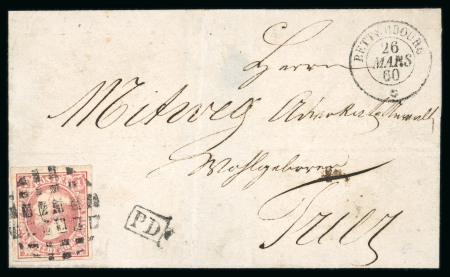 BETTEMBOURG
26
MARS
60
Herrn
Mitweg Advokat Anwalt
Wohlgeboren
Trier
PD